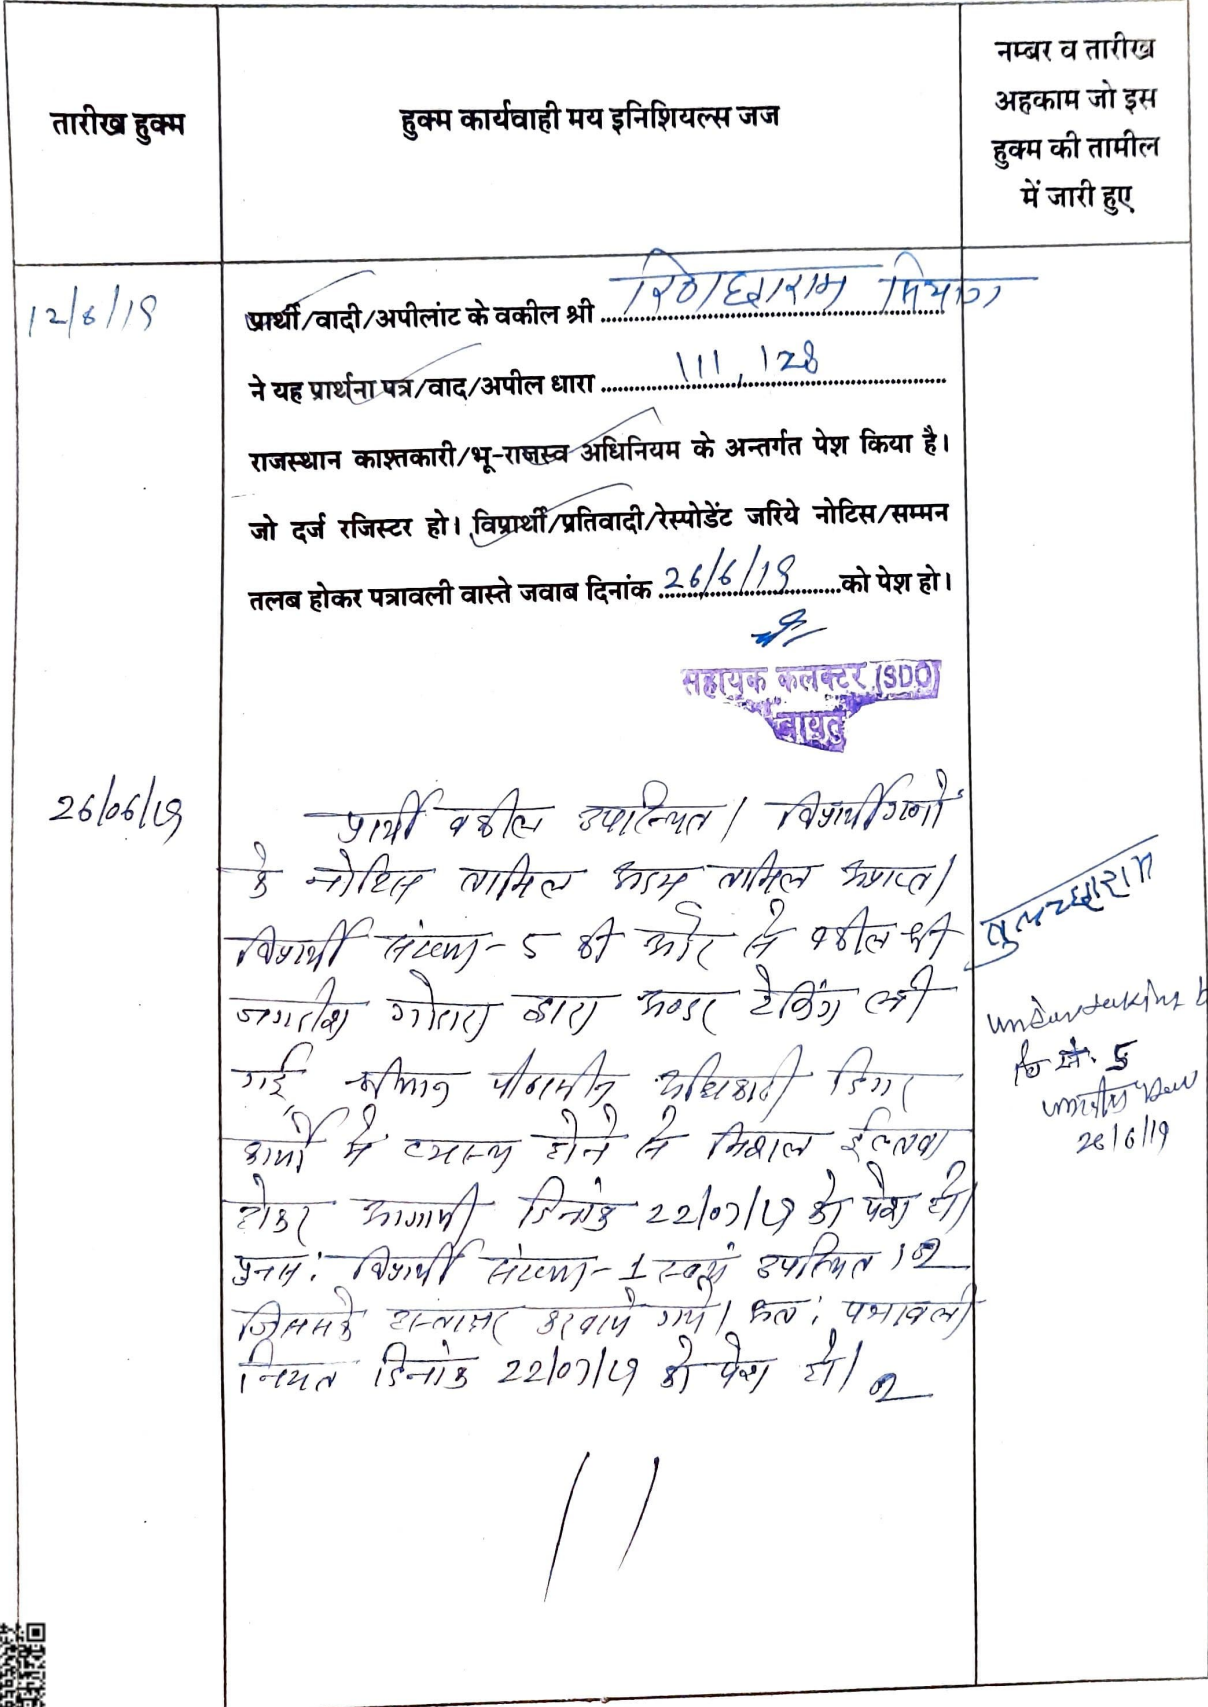 तारीख हुक्म
हुक्म कार्यवाही मय इनिशियल्स जज
नम्बर व तारीख
अहकाम जो इस
हुक्म की तामील
में जारी हुए
12/6/19
प्रार्थी/वादी/अपीलांट के वकील श्री
ने यह प्रार्थना पत्र/वाद/अपील धारा 111, 128
राजस्थान काश्तकारी/भू-राजस्व अधिनियम के अन्तर्गत पेश किया है।
जो दर्ज रजिस्टर हो। विप्रार्थी/प्रतिवादी/रेस्पोडेंट जरिये नोटिस/सम्मन
तलब होकर पत्रावली वास्ते जवाब दिनांक 26/6/19 को पेश हो।
सहायक कलक्टर (SDO)
बायतु
26/06/19
प्रार्थी वकील उपस्थित। विप्रार्थीगणों
के नोटिस तामिल अदम तामिल अप्राप्त।
विप्रार्थी संख्या-5 की ओर से वकील श्री
जगदीश गोदारा द्वारा अण्डर टेकिंग ली
गई, श्रीमान पीठासीन अधिकारी दिगर
कार्यो में व्यस्त होने से मिशल ईल्तवा
होकर आगामी दिनांक 22/07/19 को पेश हो।
पुनश्च: विप्रार्थी संख्या-1 स्वयं उपस्थित।
जिसके हस्ताक्षर करवाये गये। अतः पत्रावली
नियत दिनांक 22/07/19 को पेश हो।
undertaking b
वि सं. 5
26/6/19